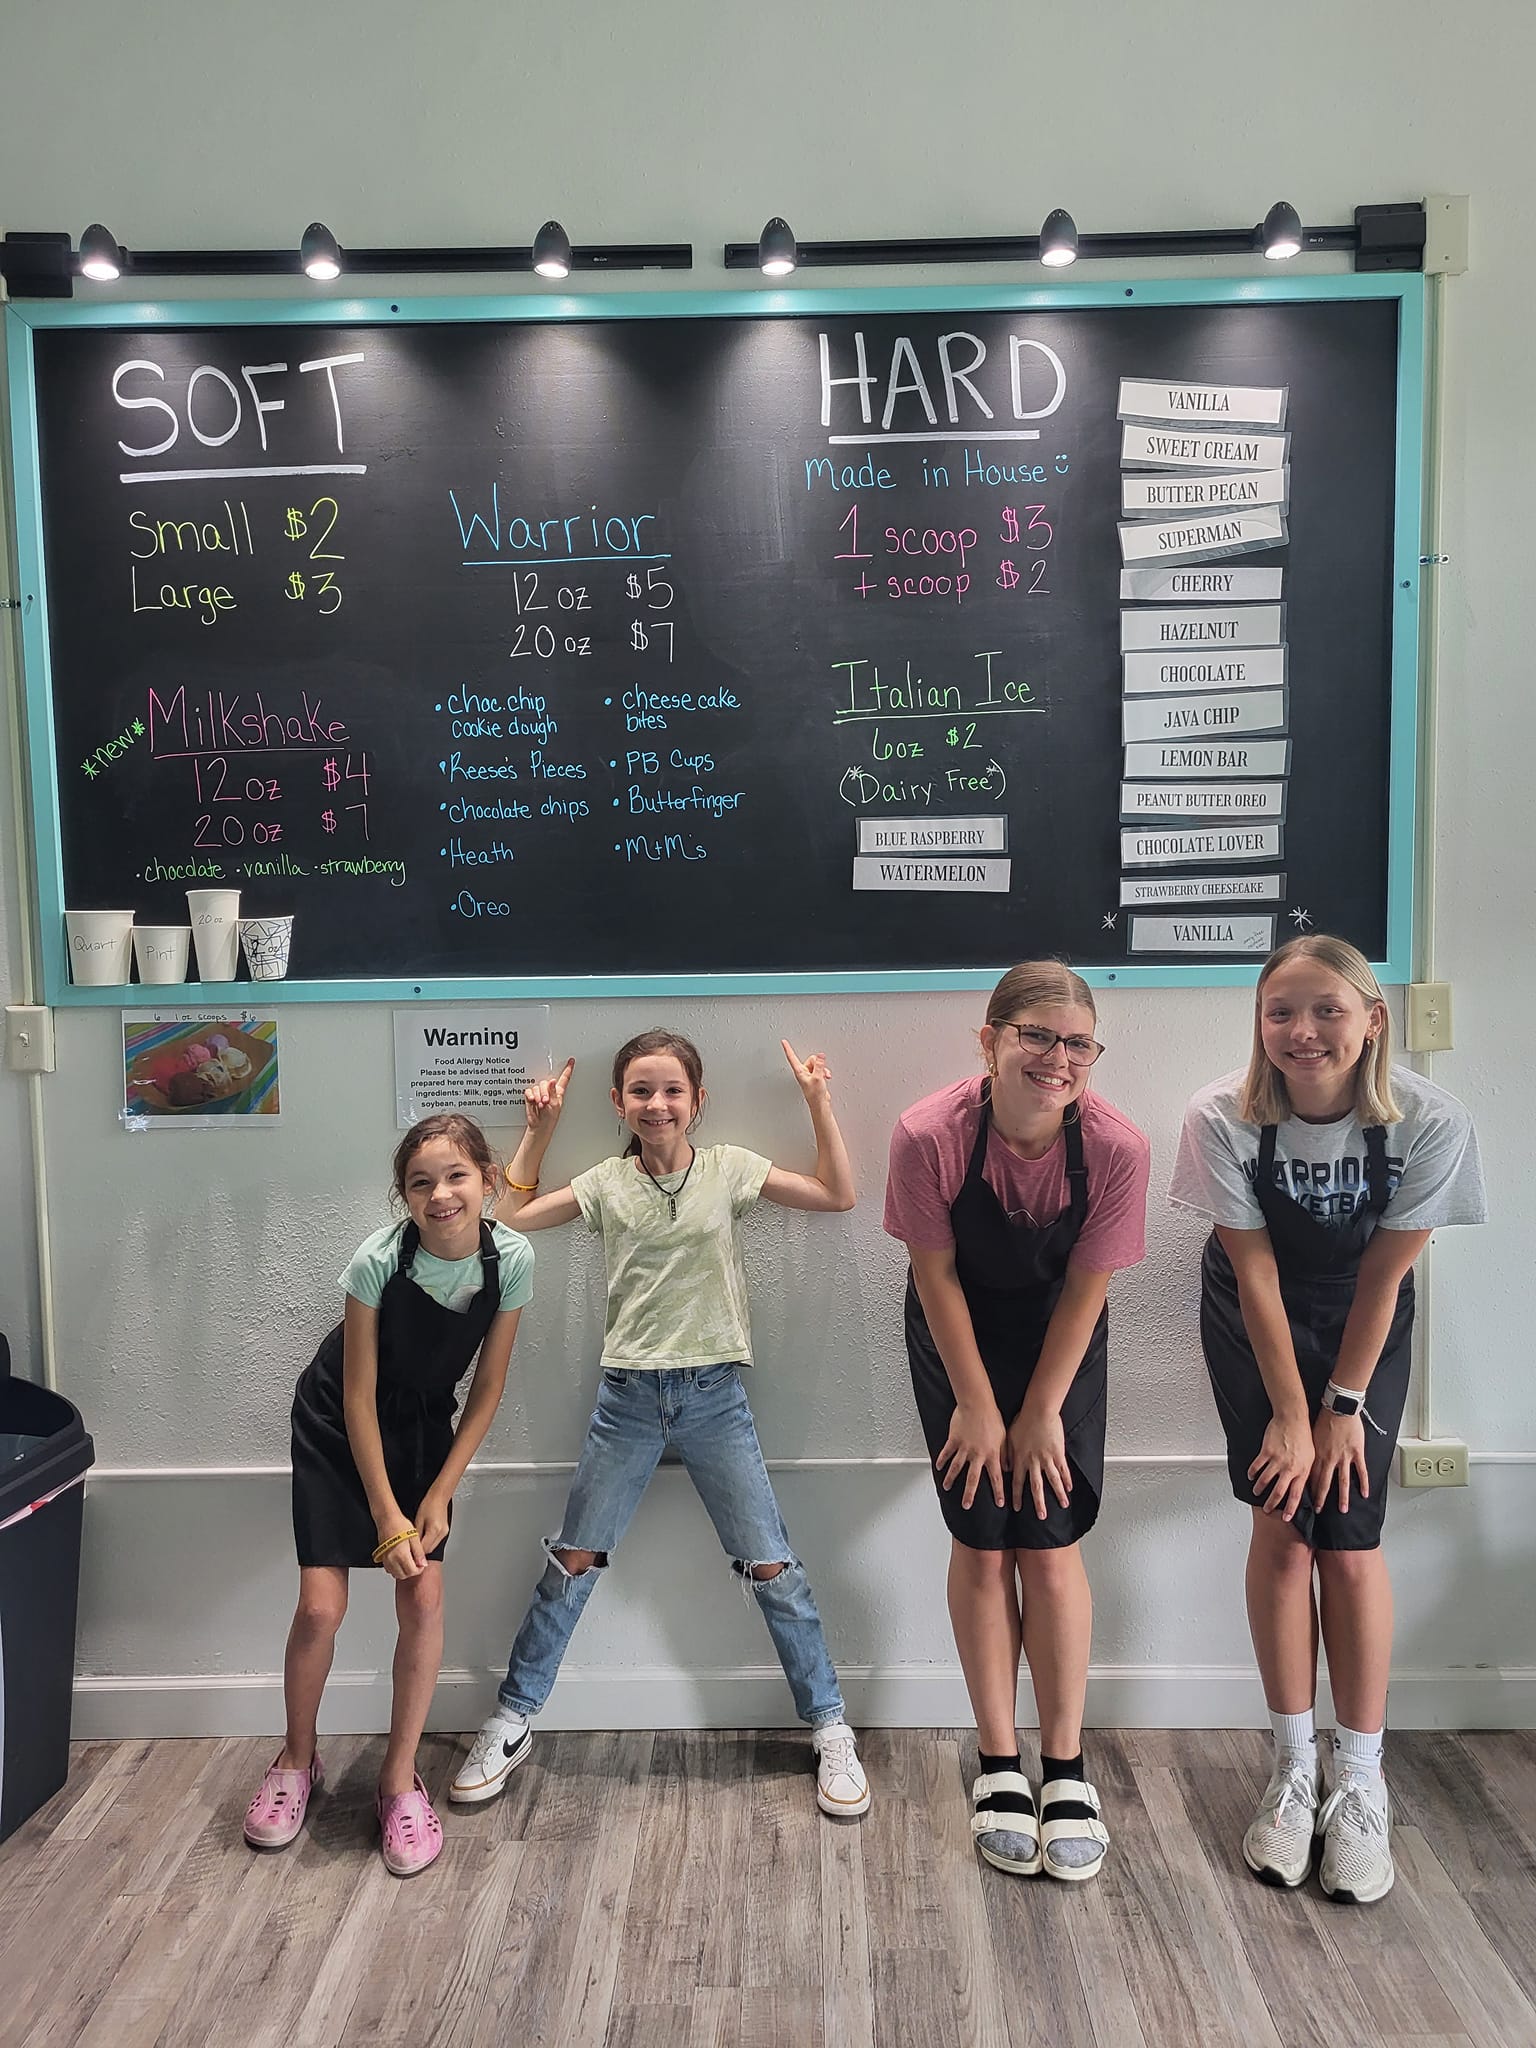 SOFT
Small $2
Large $3
*new*
Milkshake
12 oz $4
20 oz $7
• chocolate • vanilla • strawberry
Quart
Pint
20 oz
Warrior
12 oz $5
20 oz $7
• choc. chip
cookie dough
• Reese's Pieces
• chocolate chips
• Heath
• Oreo
• cheesecake
bites
• PB Cups
• Butterfinger
• M+M's
HARD
Made in House
1 scoop $3
+ scoop $2
Italian Ice
6oz $2
(*Dairy Free*)
BLUE RASPBERRY
WATERMELON
VANILLA
SWEET CREAM
BUTTER PECAN
SUPERMAN
CHERRY
HAZELNUT
CHOCOLATE
JAVA CHIP
LEMON BAR
PEANUT BUTTER OREO
CHOCOLATE LOVER
STRAWBERRY CHEESECAKE
* VANILLA *
6 1 oz scoops $6
Warning
Food Allergy Notice
Please be advised that food
prepared here may contain these
ingredients: Milk, eggs,
soybean, peanuts, tree nuts
WARRIORS